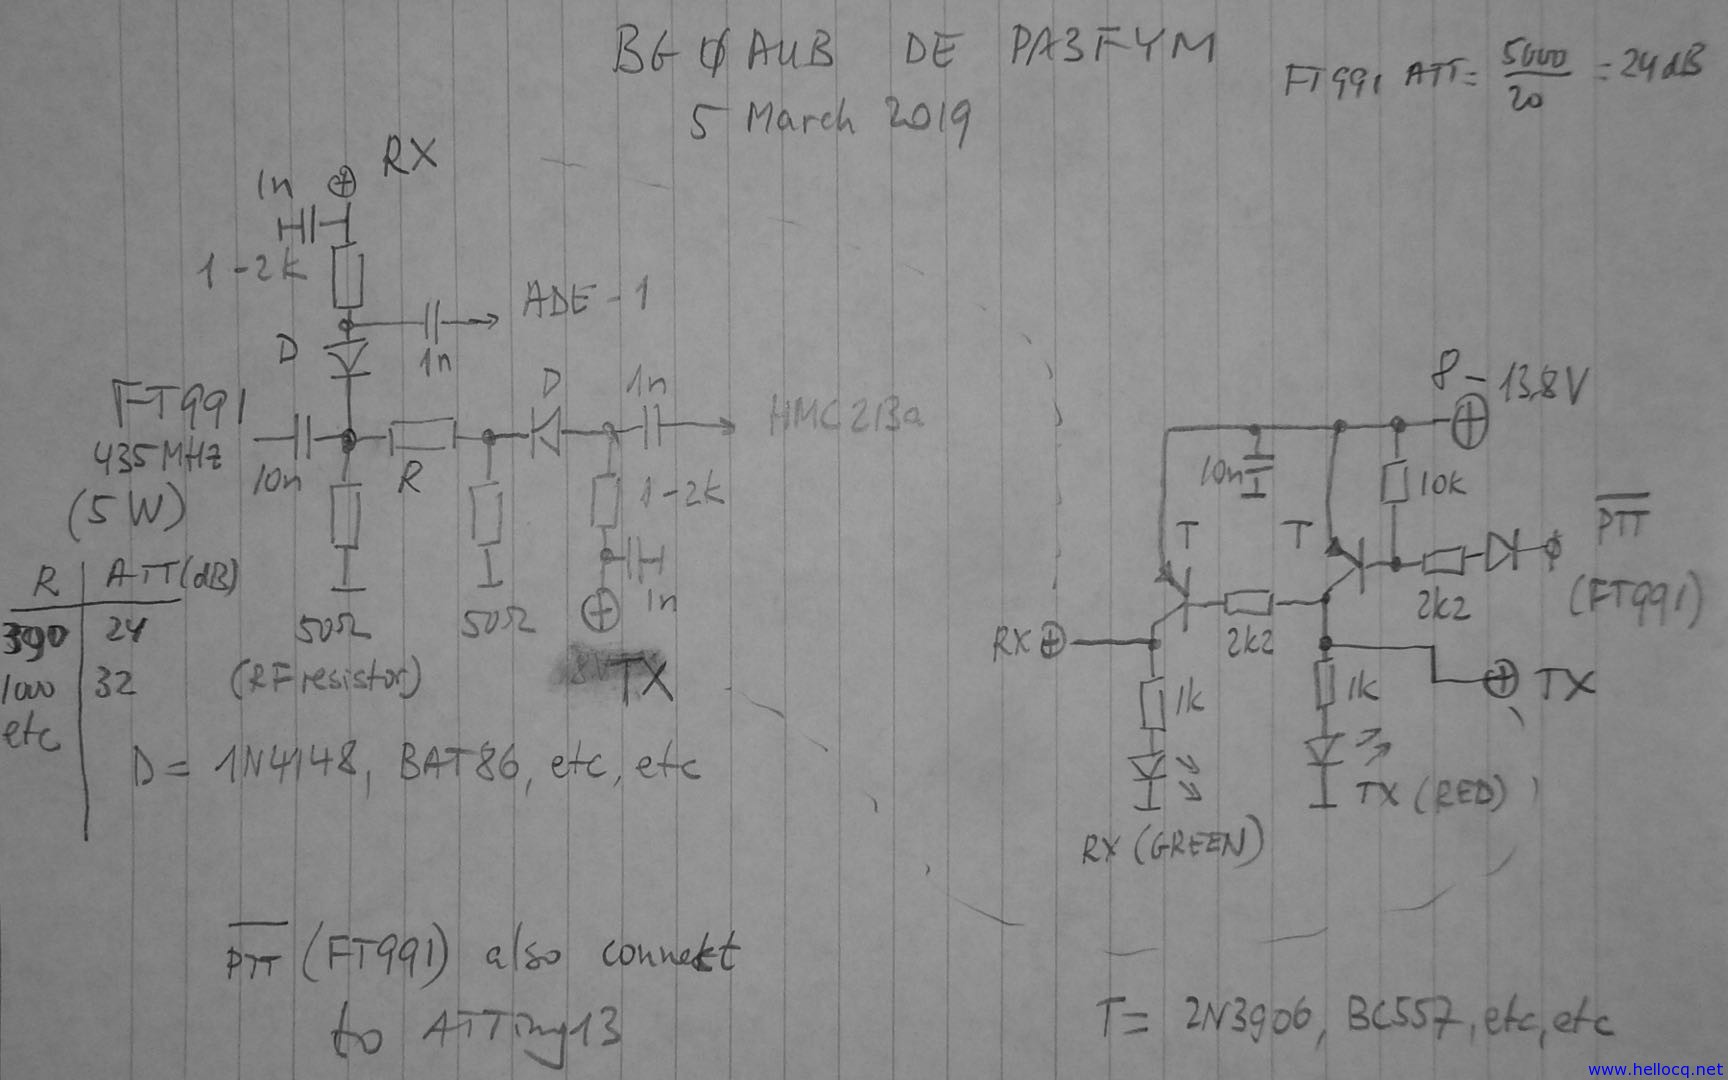 BGØAUB DE PA3FYM
5 March 2019
FT991 ATT= 5000/20 = 24dB
RX
1n
1-2k
ADE-1
D
1n
FT991
435MHz
(5W)
10n
R
D
1n
HMC213a
1-2k
1n
50Ω
50Ω
(RF resistor)
TX
R ATT(dB)
390 24
1000 32
etc
D= 1N4148, BAT86, etc, etc
PTT (FT991) also connekt
to ATTiny13
8-13.8V
10n
10k
PTT
(FT991)
T
T
2k2
2k2
RX
1k
1k
TX
TX (RED)
RX (GREEN)
T= 2N3906, BC557, etc, etc
www.hellocq.net